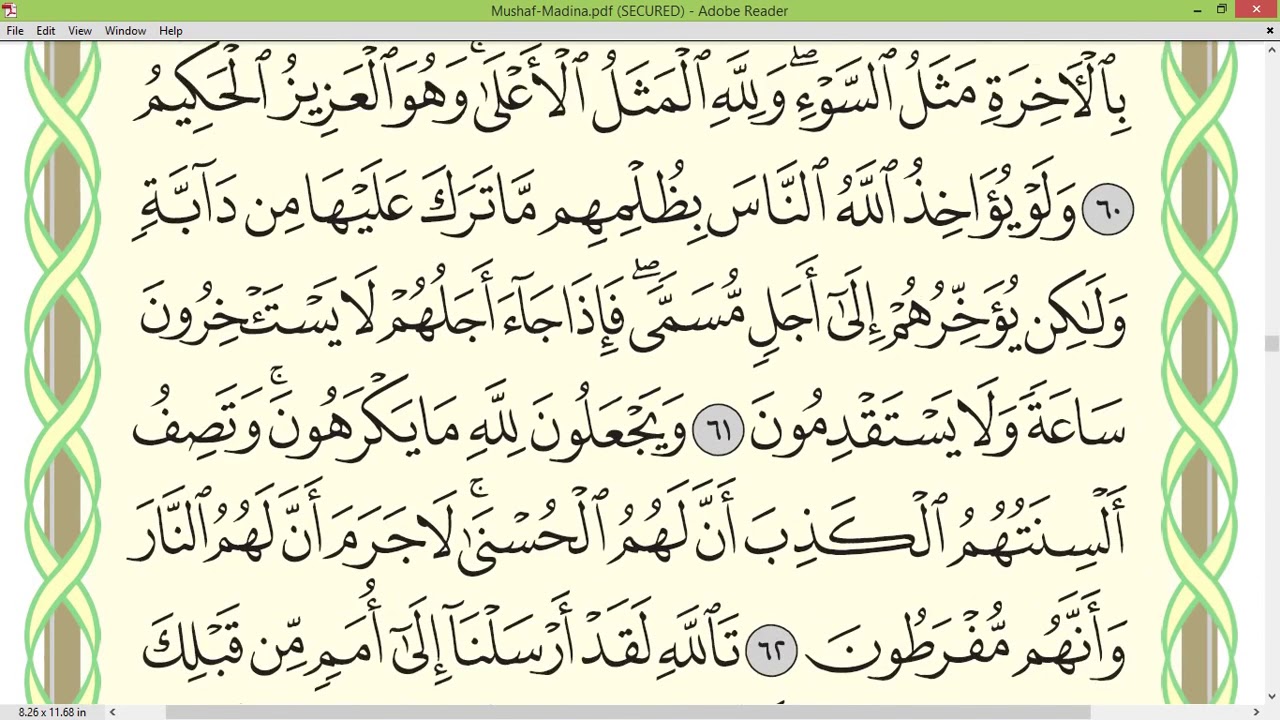 Mushaf-Madina.pdf (SECURED) - Adobe Reader
File Edit View Window Help
بِٱلۡأٓخِرَةِ مَثَلُ ٱلسَّوۡءِۖ وَلِلَّهِ ٱلۡمَثَلُ ٱلۡأَعۡلَىٰۚ وَهُوَ ٱلۡعَزِيزُ ٱلۡحَكِيمُ
٦٠ وَلَوۡ يُؤَاخِذُ ٱللَّهُ ٱلنَّاسَ بِظُلۡمِهِم مَّا تَرَكَ عَلَيۡهَا مِن دَآبَّةٖ
وَلَٰكِن يُؤَخِّرُهُمۡ إِلَىٰٓ أَجَلٖ مُّسَمّٗىۖ فَإِذَا جَآءَ أَجَلُهُمۡ لَا يَسۡتَـٔۡخِرُونَ
سَاعَةٗ وَلَا يَسۡتَقۡدِمُونَ ٦١ وَيَجۡعَلُونَ لِلَّهِ مَا يَكۡرَهُونَۚ وَتَصِفُ
أَلۡسِنَتُهُمُ ٱلۡكَذِبَ أَنَّ لَهُمُ ٱلۡحُسۡنَىٰۚ لَا جَرَمَ أَنَّ لَهُمُ ٱلنَّارَ
وَأَنَّهُم مُّفۡرَطُونَ ٦٢ تَٱللَّهِ لَقَدۡ أَرۡسَلۡنَآ إِلَىٰٓ أُمَمٖ مِّن قَبۡلِكَ
8.26 x 11.68 in